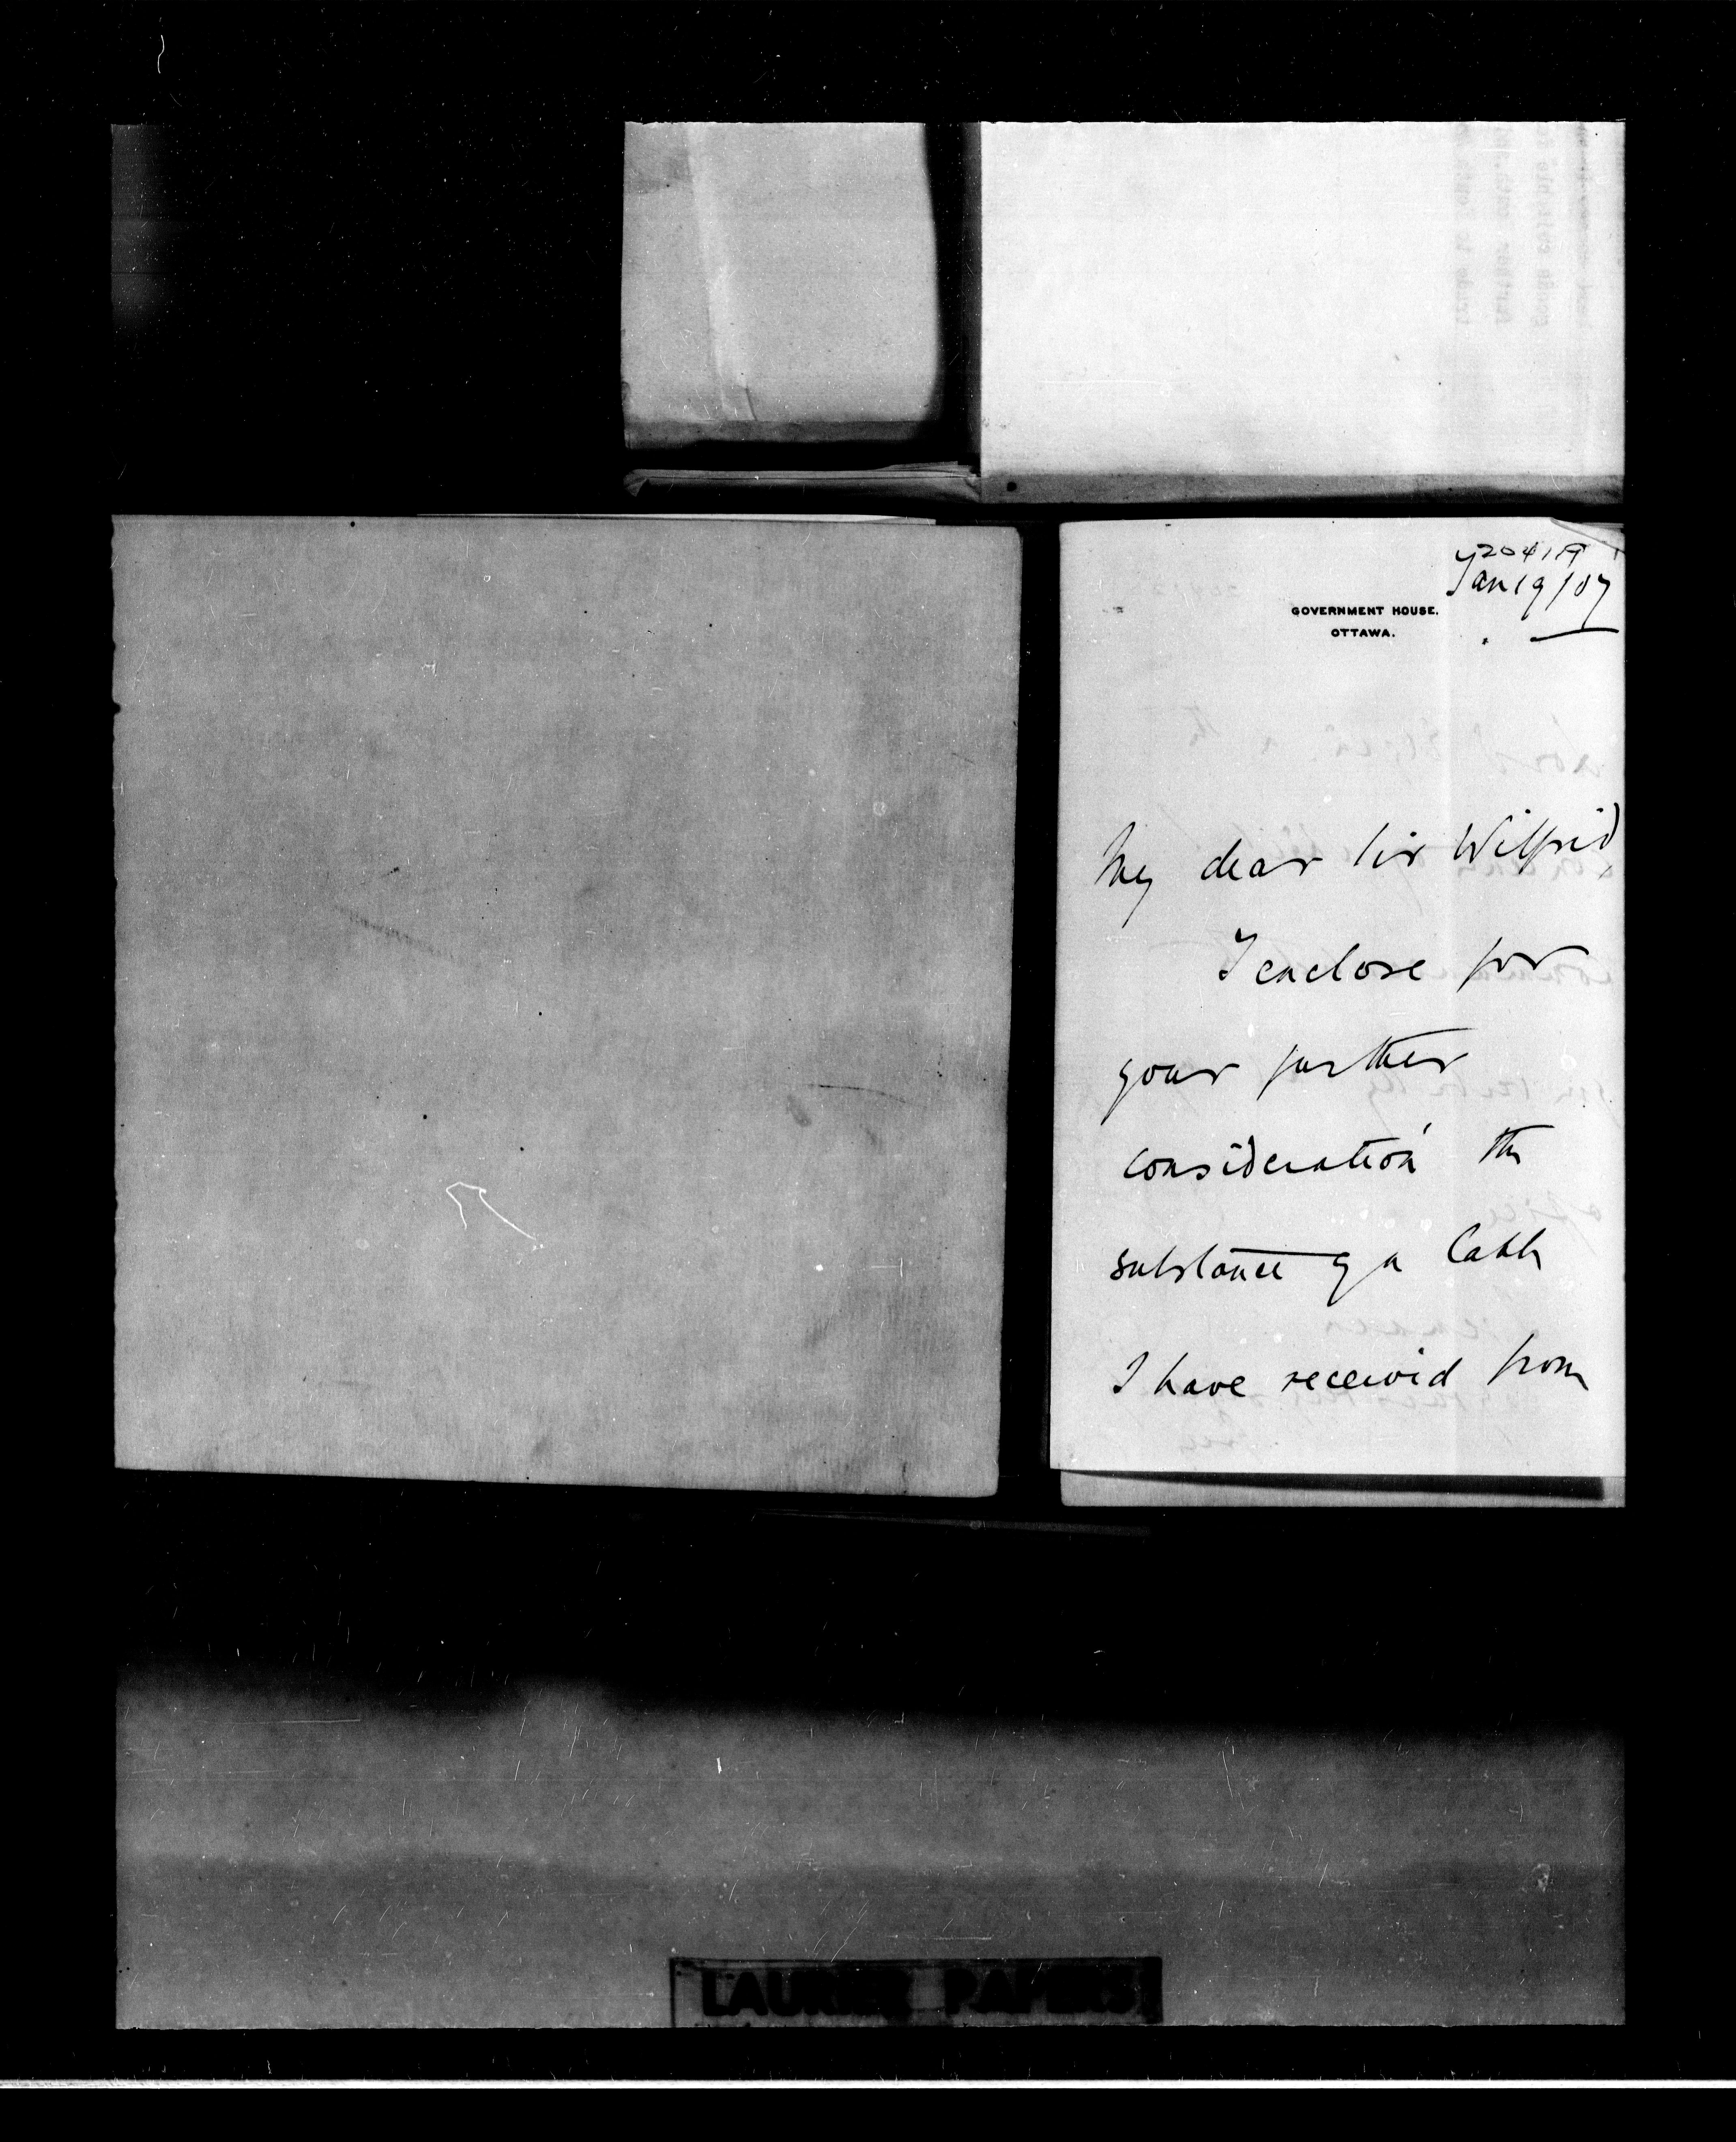 204119
Jan 19/07
GOVERNMENT HOUSE.
OTTAWA.
My dear Sir Wilfrid,
I enclose for
your further
consideration the
substance of a Cable
I have received from
LAURIER PAPERS